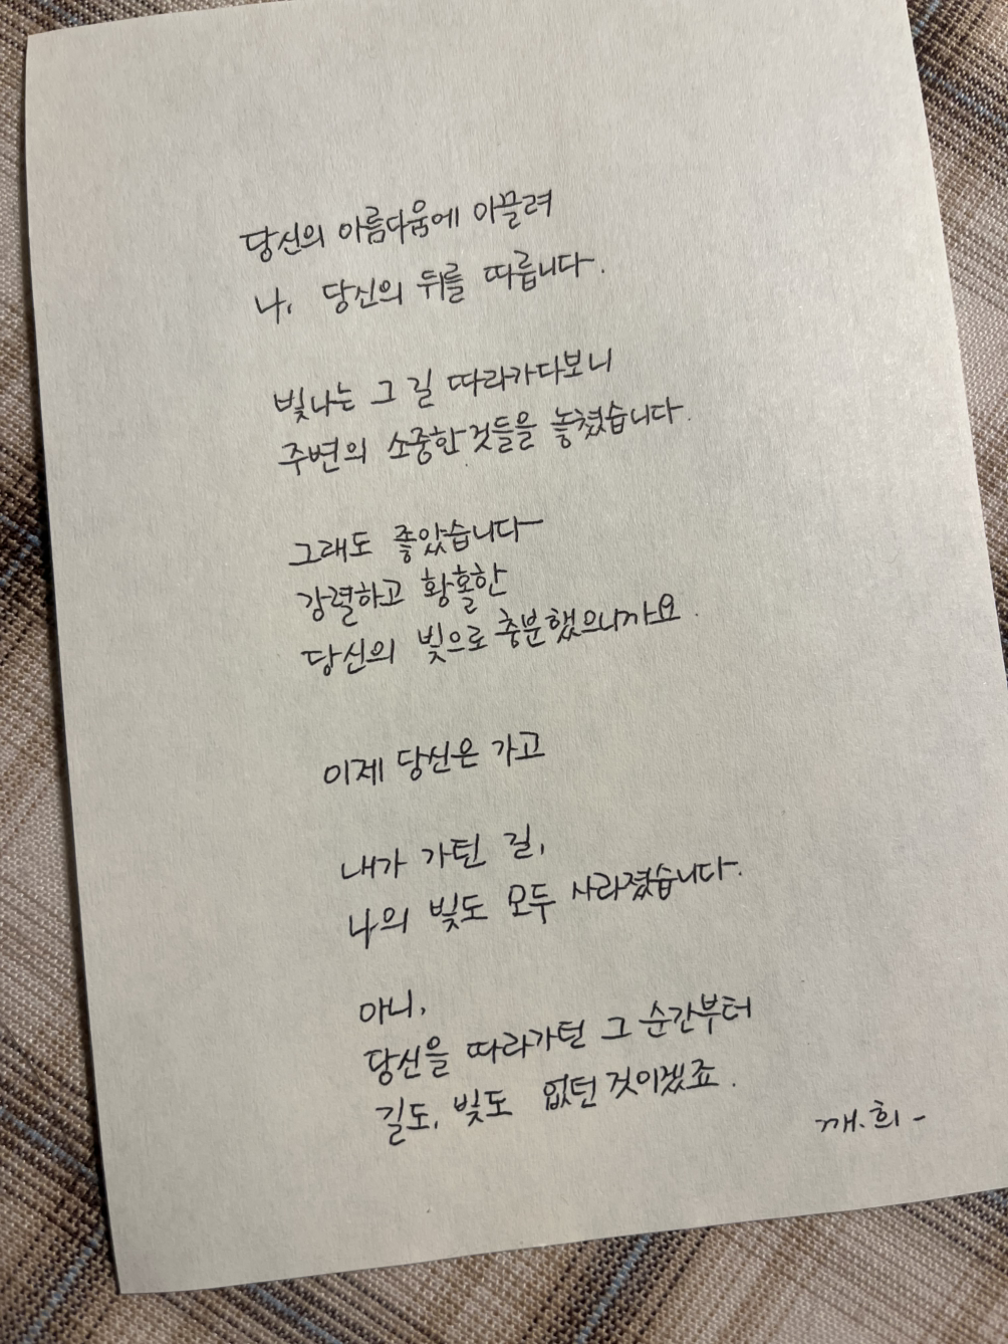 당신의 아름다움에 이끌려
나, 당신의 뒤를 따릅니다.
빛나는 그 길 따라가다보니
주변의 소중한것들을 놓쳤습니다.
그래도 좋았습니다
강렬하고 황홀한
당신의 빛으로 충분했으니까요.
이제 당신은 가고
내가 가던 길,
나의 빛도 모두 사라졌습니다.
아니,
당신을 따라가던 그 순간부터
길도, 빛도 없던 것이겠죠.
깨.희-